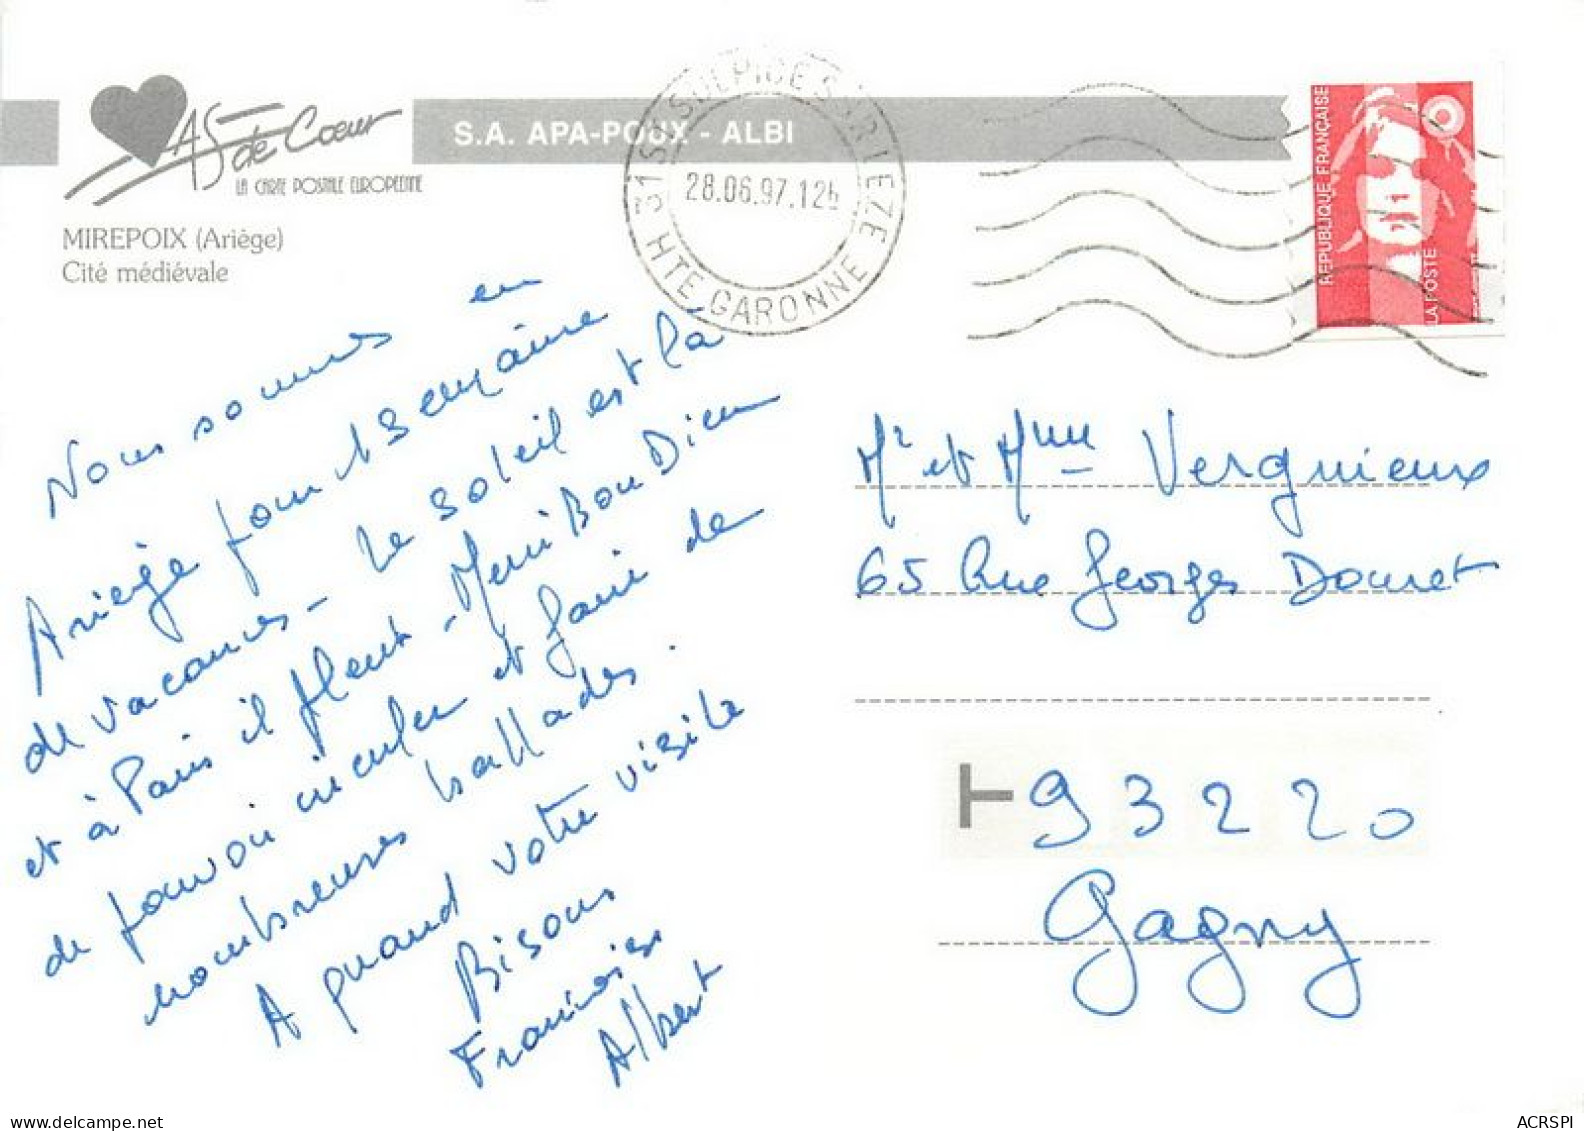 AS de Cœur
LA CARTE POSTALE EUROPEENNE
S.A. APA-POUX - ALBI
MIREPOIX (Ariège)
Cité médiévale
31 ST SULPICE S/LEZE
28.06.97.12h
HTE GARONNE
REPUBLIQUE FRANÇAISE
LA POSTE
Nous sommes en
Ariège pour 1 semaine
de vacances - Le soleil est là
et à Paris il pleut - Merci Bon Dieu
de pouvoir circuler et faire de
nombreuses ballades.
A quand votre visite
Bisous
Françoise
Albert
Mr et Mme Vergnieux
65 Rue Georges Douret
93220
Gagny
www.delcampe.net
ACRSPI